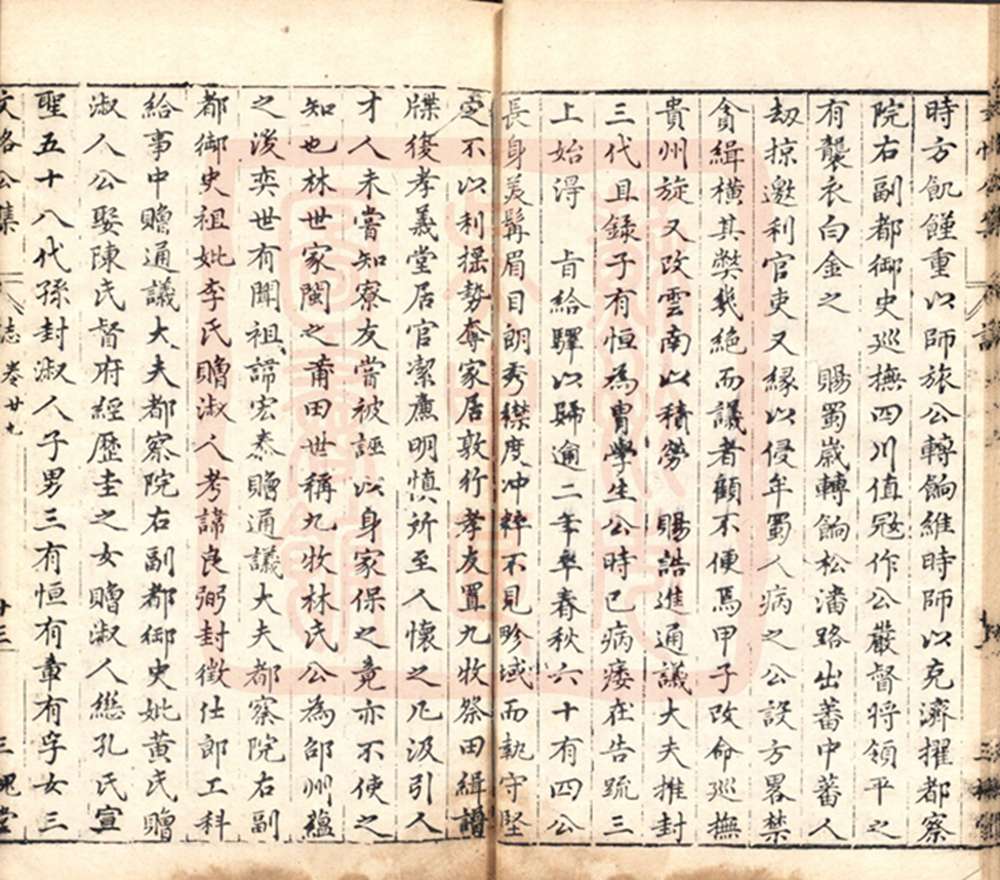 時方飢饉重以師旅公轉餉維時師以克濟擢都察
院右副都御史巡撫四川值冦作公嚴督將領平之
有襲衣白金之　賜蜀歲轉餉松潘路出蕃中蕃人
刼掠邀利官吏又緣以侵牟蜀人病之公設方畧禁
貪緝横其弊幾絶而議者顧不便焉甲子改命巡撫
貴州旋又改雲南以積勞　賜誥進通議大夫推封
三代且錄子有恒為胄學生公時已病痿在告疏三
上始得　旨給驛以歸逾二年卒春秋六十有四公
長身美髯眉目朗秀襟度冲粹不見畛域而執守堅
定不以利揺勢奪家居敦行孝友置九牧祭田緝譜
牒復孝義堂居官潔亷明慎所至人懷之凡汲引人
才人未嘗知寮友嘗被誣以身家保之竟亦不使之
知也林世家閩之莆田世稱九牧林氏公為邵州蘊
之後奕世有聞祖諱宏泰贈通議大夫都察院右副
都御史祖妣李氏贈淑人考諱良弼封徵仕郎工科
給事中贈通議大夫都察院右副都御史妣黄氏贈
淑人公娶陳氏督府經歷圭之女贈淑人繼孔氏宣
聖五十八代孫封淑人子男三有恒有章有孚女三
文恪公集　志卷廿九　十三　三槐堂